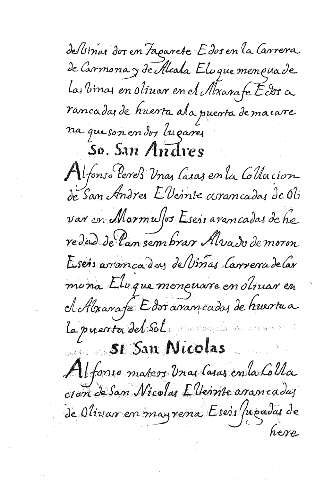 de Viñas dos en Tagarete E dos en la Carrera
de Carmona y de Alcala E lo que mengua de
las Viñas en olivar en el Alxarafe E dos a
rancadas de huerta a la puerta de macare
na que son en dos lugares
50. San Andres
Alfonso Perez Unas Casas en la Collacion
de San Andres E Veinte arancadas de Oli
var en Mormujos E seis arancadas de he
redad de Pan sembrar Alvado de moron
E seis arancadas de Viñas Carrera de Car
mona E lo que menguare en olivar en
el Alxarafe E dos arancadas de huerta a
la puerta del Sol.
51 San Nicolas
Alfonso mateos Unas Casas en la Colla
cion de San Nicolas E Veinte arancadas
de Olivar en mayrena E seis Jugadas de
here